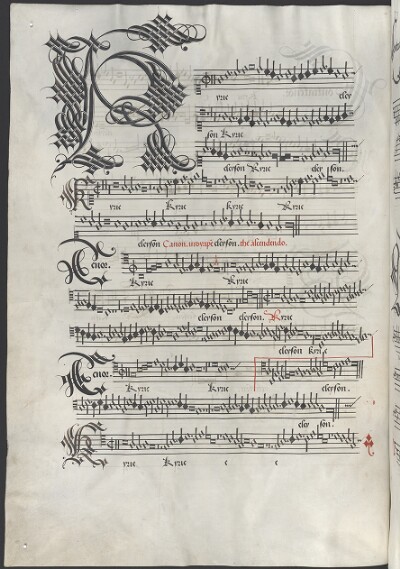 K yrie eley
son Kyrie
eleyson Kyrie eley son.
K yrie Kyrie kyrie Kyrie
eleyson Canon. eleyson.
Tenor. Kyrie Kyrie
eleyson eleyson. Kyrie
eleyson kyrie
Tenor. Kyrie Kyrie eleyson.
eley son.
K yrie Kyrie e e